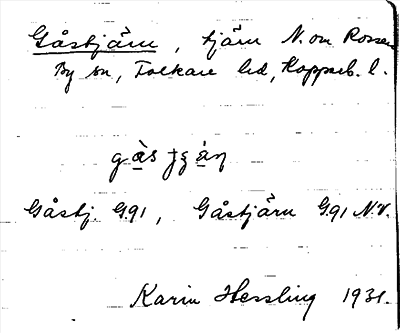 Gåstjärn, tjärn N. om Rossen
By sn, Folkare hd, Kopparb. l.
Gåstj. G91, Gåstjärn G.91 N.V.
Karin Hessling 1931.